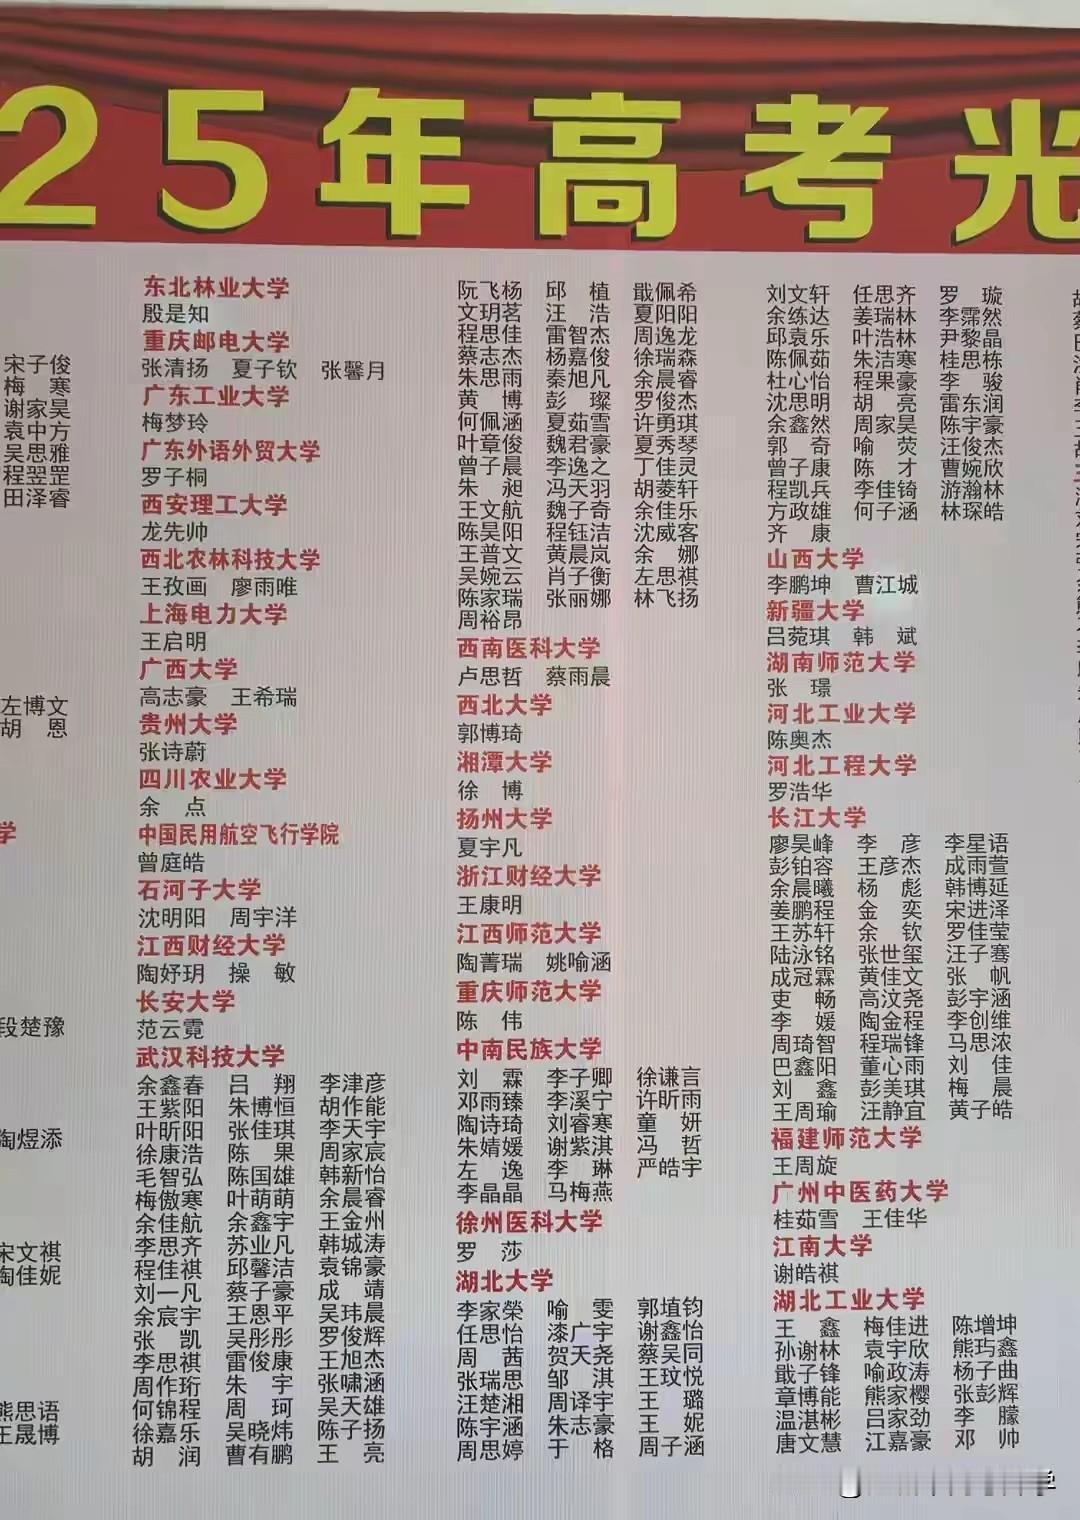 25年高考光
宋子俊
梅 寒
谢家昊
袁中方
吴思雅
程翌罡
田泽睿
左博文
胡 恩
学
段楚豫
陶煜添
宋文祺
陶佳妮
熊思语
王晟博
东北林业大学
殷是知
重庆邮电大学
张清扬 夏子钦 张馨月
广东工业大学
梅梦玲
广东外语外贸大学
罗子桐
西安理工大学
龙先帅
西北农林科技大学
王孜画 廖雨唯
上海电力大学
王启明
广西大学
高志豪 王希瑞
贵州大学
张诗蔚
四川农业大学
余 点
中国民用航空飞行学院
曾庭皓
石河子大学
沈明阳 周宇洋
江西财经大学
陶妤玥 操 敏
长安大学
范云霓
武汉科技大学
余鑫春 吕 翔 李津彦
王紫阳 朱博恒 胡作能
叶昕阳 张佳琪 李天宇
徐康浩 陈 果 周家宸
毛智弘 陈国雄 韩新怡
梅傲寒 叶萌萌 余晨睿
余佳航 余鑫宇 王金州
李思齐 苏业凡 韩城涛
程佳祺 邱馨洁 袁锦豪
刘一凡 蔡子豪 成 靖
余宸宇 王恩平 吴玮晨
张 凯 吴彤彤 罗俊辉
李思祺 雷俊康 王旭杰
周作珩 朱 宇 张啸涵
何锦程 周 珂 吴天雄
徐嘉乐 吴晓炜 陈子扬
胡 润 曹有鹏 王 亮
阮飞杨 邱 植 戢佩希
文玥茗 汪 浩 夏阳阳
程思佳 雷智杰 周逸龙
蔡志杰 杨嘉俊 徐瑞森
朱思雨 秦旭凡 余晨睿
黄 博 彭 璨 罗俊杰
何佩涵 夏茹雪 许勇琪
叶章俊 魏君豪 夏秀琴
曾子晨 李逸之 丁佳灵
朱 昶 冯天羽 胡菱轩
王文航 魏子奇 余佳乐
陈昊阳 程钰洁 沈威客
王普文 黄晨岚 余 娜
吴婉云 肖子衡 左思祺
陈家瑞 张丽娜 林飞扬
周裕昂
西南医科大学
卢思哲 蔡雨晨
西北大学
郭博琦
湘潭大学
徐 博
扬州大学
夏宇凡
浙江财经大学
王康明
江西师范大学
陶菁瑞 姚喻涵
重庆师范大学
陈 伟
中南民族大学
刘 霖 李子卿 徐谦言
邓雨臻 李溪宁 许昕雨
陶诗琦 刘睿寒 童 妍
朱婧媛 谢紫淇 冯 哲
左 逸 李 琳 严皓宇
李晶晶 马梅燕
徐州医科大学
罗 莎
湖北大学
李家榮 喻 雯 郭埴钧
任思怡 漆广宇 谢鑫怡
周 茜 贺天尧 蔡昊同
张瑞思 邹 淇 王玟悦
汪楚湘 周译宇 王 璐
陈宇涵 朱志豪 王 妮
周思婷 于 格 周子涵
刘文轩 任思齐 罗 璇
余练达 姜瑞林 李霈然
邱袁乐 叶浩林 尹黎晶
陈佩茹 朱洁寒 桂思栋
杜心怡 程果豪 李 骏
沈思明 胡 亮 雷东润
余鑫然 周家昊 陈宇豪
郭 奇 喻 荧 汪俊杰
曾子康 陈 才 曹婉欣
程凯兵 李佳锜 游瀚林
方政雄 何子涵 林琛皓
齐 康
山西大学
李鹏坤 曹江城
新疆大学
吕菀琪 韩 斌
湖南师范大学
张 璟
河北工业大学
陈奥杰
河北工程大学
罗浩华
长江大学
廖昊峰 李 彦 李星语
彭铂容 王彦杰 成雨萱
余晨曦 杨 彪 韩博延
姜鹏程 金 奕 宋进泽
王苏轩 余 钦 罗佳莹
陆泳铭 张世玺 汪子骞
成冠霖 黄佳文 张 帆
吏 畅 高汶尧 彭宇涵
李 媛 陶金程 李创维
周琦智 程瑞锋 马思浓
巴鑫阳 董心雨 刘 佳
刘 鑫 彭美琪 梅 晨
王周瑜 汪静宜 黄子皓
福建师范大学
王周旋
广州中医药大学
桂茹雪 王佳华
江南大学
谢皓祺
湖北工业大学
王 鑫 梅佳进 陈增坤
孙谢林 袁宇欣 熊玙鑫
戢子锋 喻政涛 杨子曲
章博能 熊家樱 张彭辉
温湛彬 吕家劲 李 朦
唐文慧 江嘉豪 邓 帅